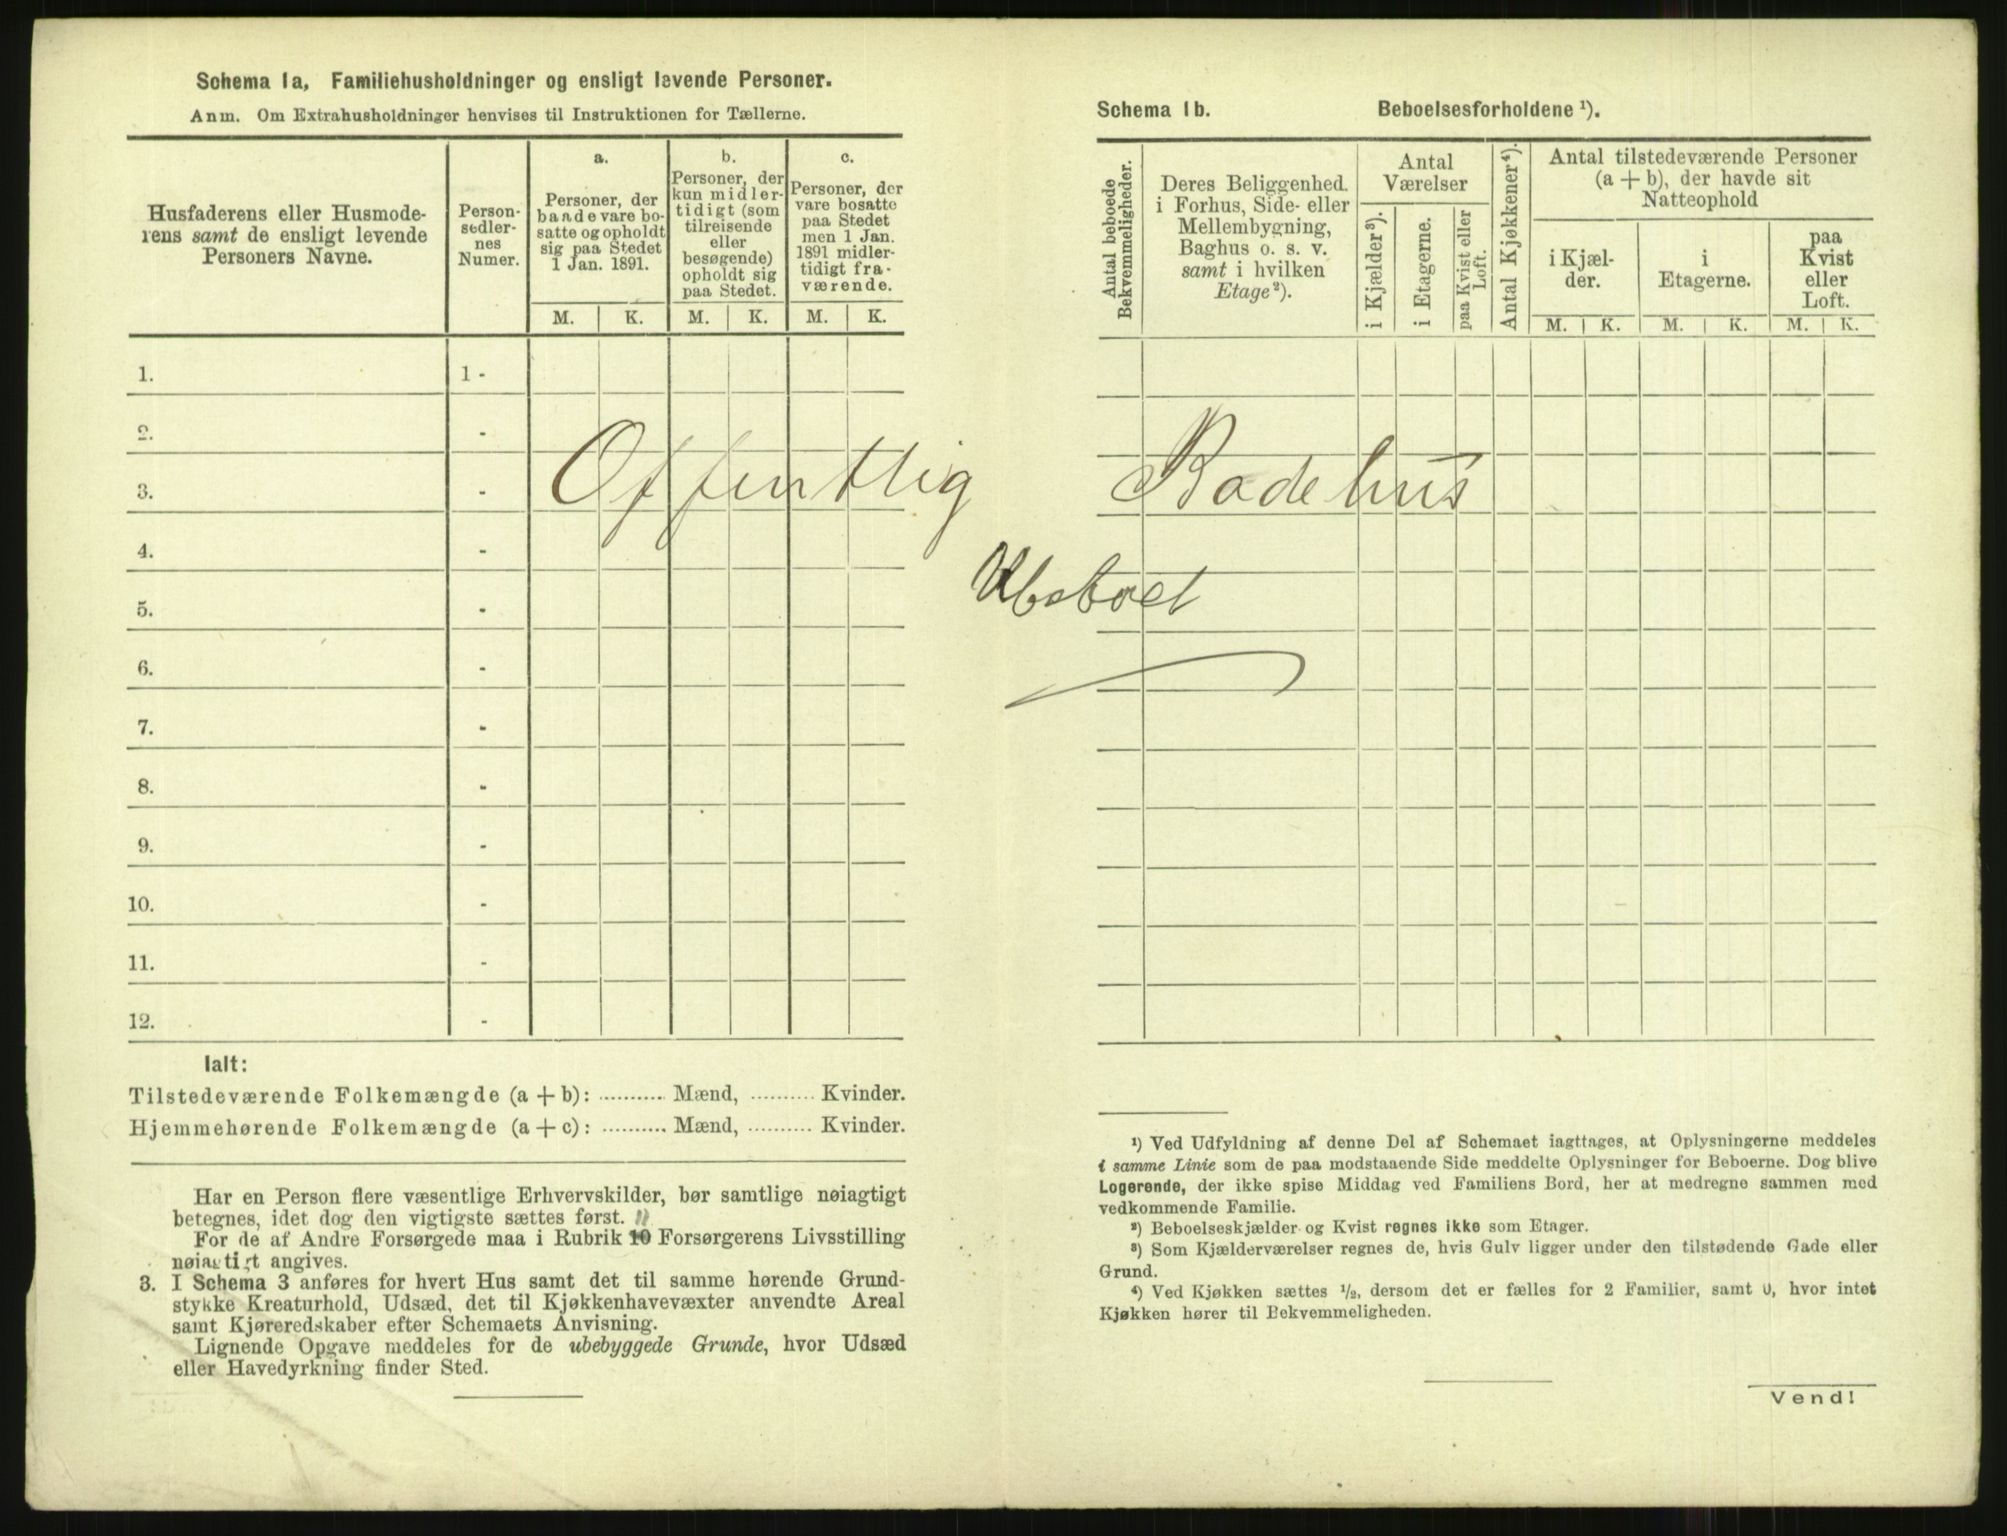 Schema 1a, Familiehusholdninger og ensligt levende Personer.
Anm. Om Extrahusholdninger henvises til Instruktionen for Tællerne.
Husfaderens eller Husmode-
rens samt de ensligt levende
Personers Navne.
Person-
sedler-
nes
Numer.
a.
Personer, der
baade vare bo-
satte og opholdt
sig paa Stedet
1 Jan. 1891.
b.
Personer, der
kun midler-
tidigt (som
tilreisende
eller
besøgende)
opholdt sig
paa Stedet.
c.
Personer, der
vare bosatte
paa Stedet
men 1 Jan.
1891 midler-
tidigt fra-
værende.
M. K. M. K. M. K.
1. 1 -
2. -
3. -
4. -
5. -
6. -
7. -
8. -
9. -
10. -
11. -
12. -
Offentlig Badehus
Ubeboet
Ialt:
Tilstedeværende Folkemængde (a + b): .......... Mænd, .......... Kvinder.
Hjemmehørende Folkemængde (a + c): .......... Mænd, .......... Kvinder.
Har en Person flere væsentlige Erhvervskilder, bør samtlige nøiagtigt
betegnes, idet dog den vigtigste sættes først.
For de af Andre Forsørgede maa i Rubrik 10 Forsørgerens Livsstilling
nøiagtigt angives.
3. I Schema 3 anføres for hvert Hus samt det til samme hørende Grund-
stykke Kreaturhold, Udsæd, det til Kjøkkenhavevæxter anvendte Areal
samt Kjøreredskaber efter Schemaets Anvisning.
Lignende Opgave meddeles for de ubebyggede Grunde, hvor Udsæd
eller Havedyrkning finder Sted.
Schema 1b. Beboelsesforholdene ¹).
Antal beboede
Bekvemmeligheder.
Deres Beliggenhed.
i Forhus, Side- eller
Mellembygning,
Baghus o. s. v.
samt i hvilken
Etage²).
Antal
Værelser
i Kjælder³).
i Etagerne.
paa Kvist eller
Loft.
Antal Kjøkkener⁴).
Antal tilstedeværende Personer
(a + b), der havde sit
Natteophold
i Kjæl-
der.
i
Etagerne.
paa
Kvist
eller
Loft.
M. K. M. K. M. K.
¹) Ved Udfyldning af denne Del af Schemaet iagttages, at Oplysningerne meddeles
i samme Linie som de paa modstaaende Side meddelte Oplysninger for Beboerne. Dog blive
Logerende, der ikke spise Middag ved Familiens Bord, her at medregne sammen med
vedkommende Familie.
²) Beboelseskjælder og Kvist regnes ikke som Etager.
³) Som Kjælderværelser regnes de, hvis Gulv ligger under den tilstødende Gade eller
Grund.
⁴) Ved Kjøkken sættes ½, dersom det er fælles for 2 Familier, samt 0, hvor intet
Kjøkken hører til Bekvemmeligheden.
Vend!